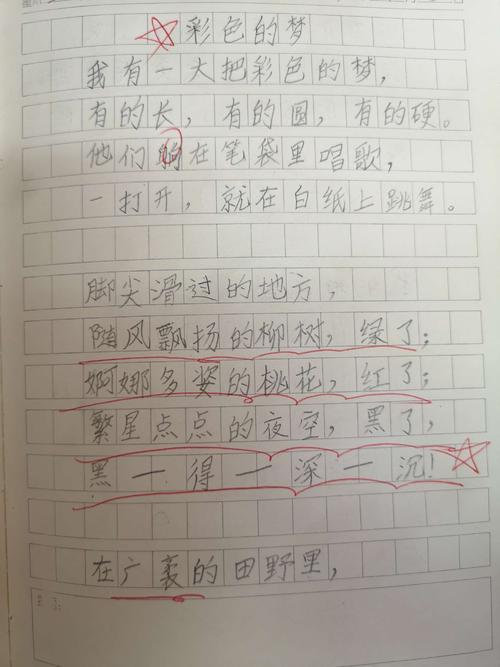 彩色的梦
我有一大把彩色的梦，
有的长，有的圆，有的硬。
他们躺在笔袋里唱歌，
一打开，就在白纸上跳舞。
脚尖滑过的地方，
随风飘扬的柳树，绿了；
婀娜多姿的桃花，红了；
繁星点点的夜空，黑了，
黑—得—深—沉！
在广袤的田野里，